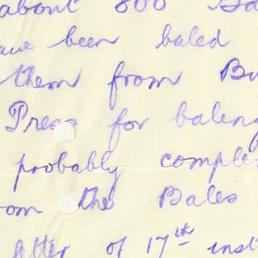 about 800
have been baled
them from
Press for baling
probably
from the Bales
of 17th inst